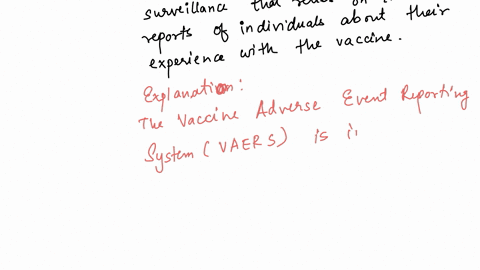 surveillance that
reports of individuals about their
experience with the vaccine.
Explanation:
The Vaccine Adverse Event Reporting
System (VAERS) is i